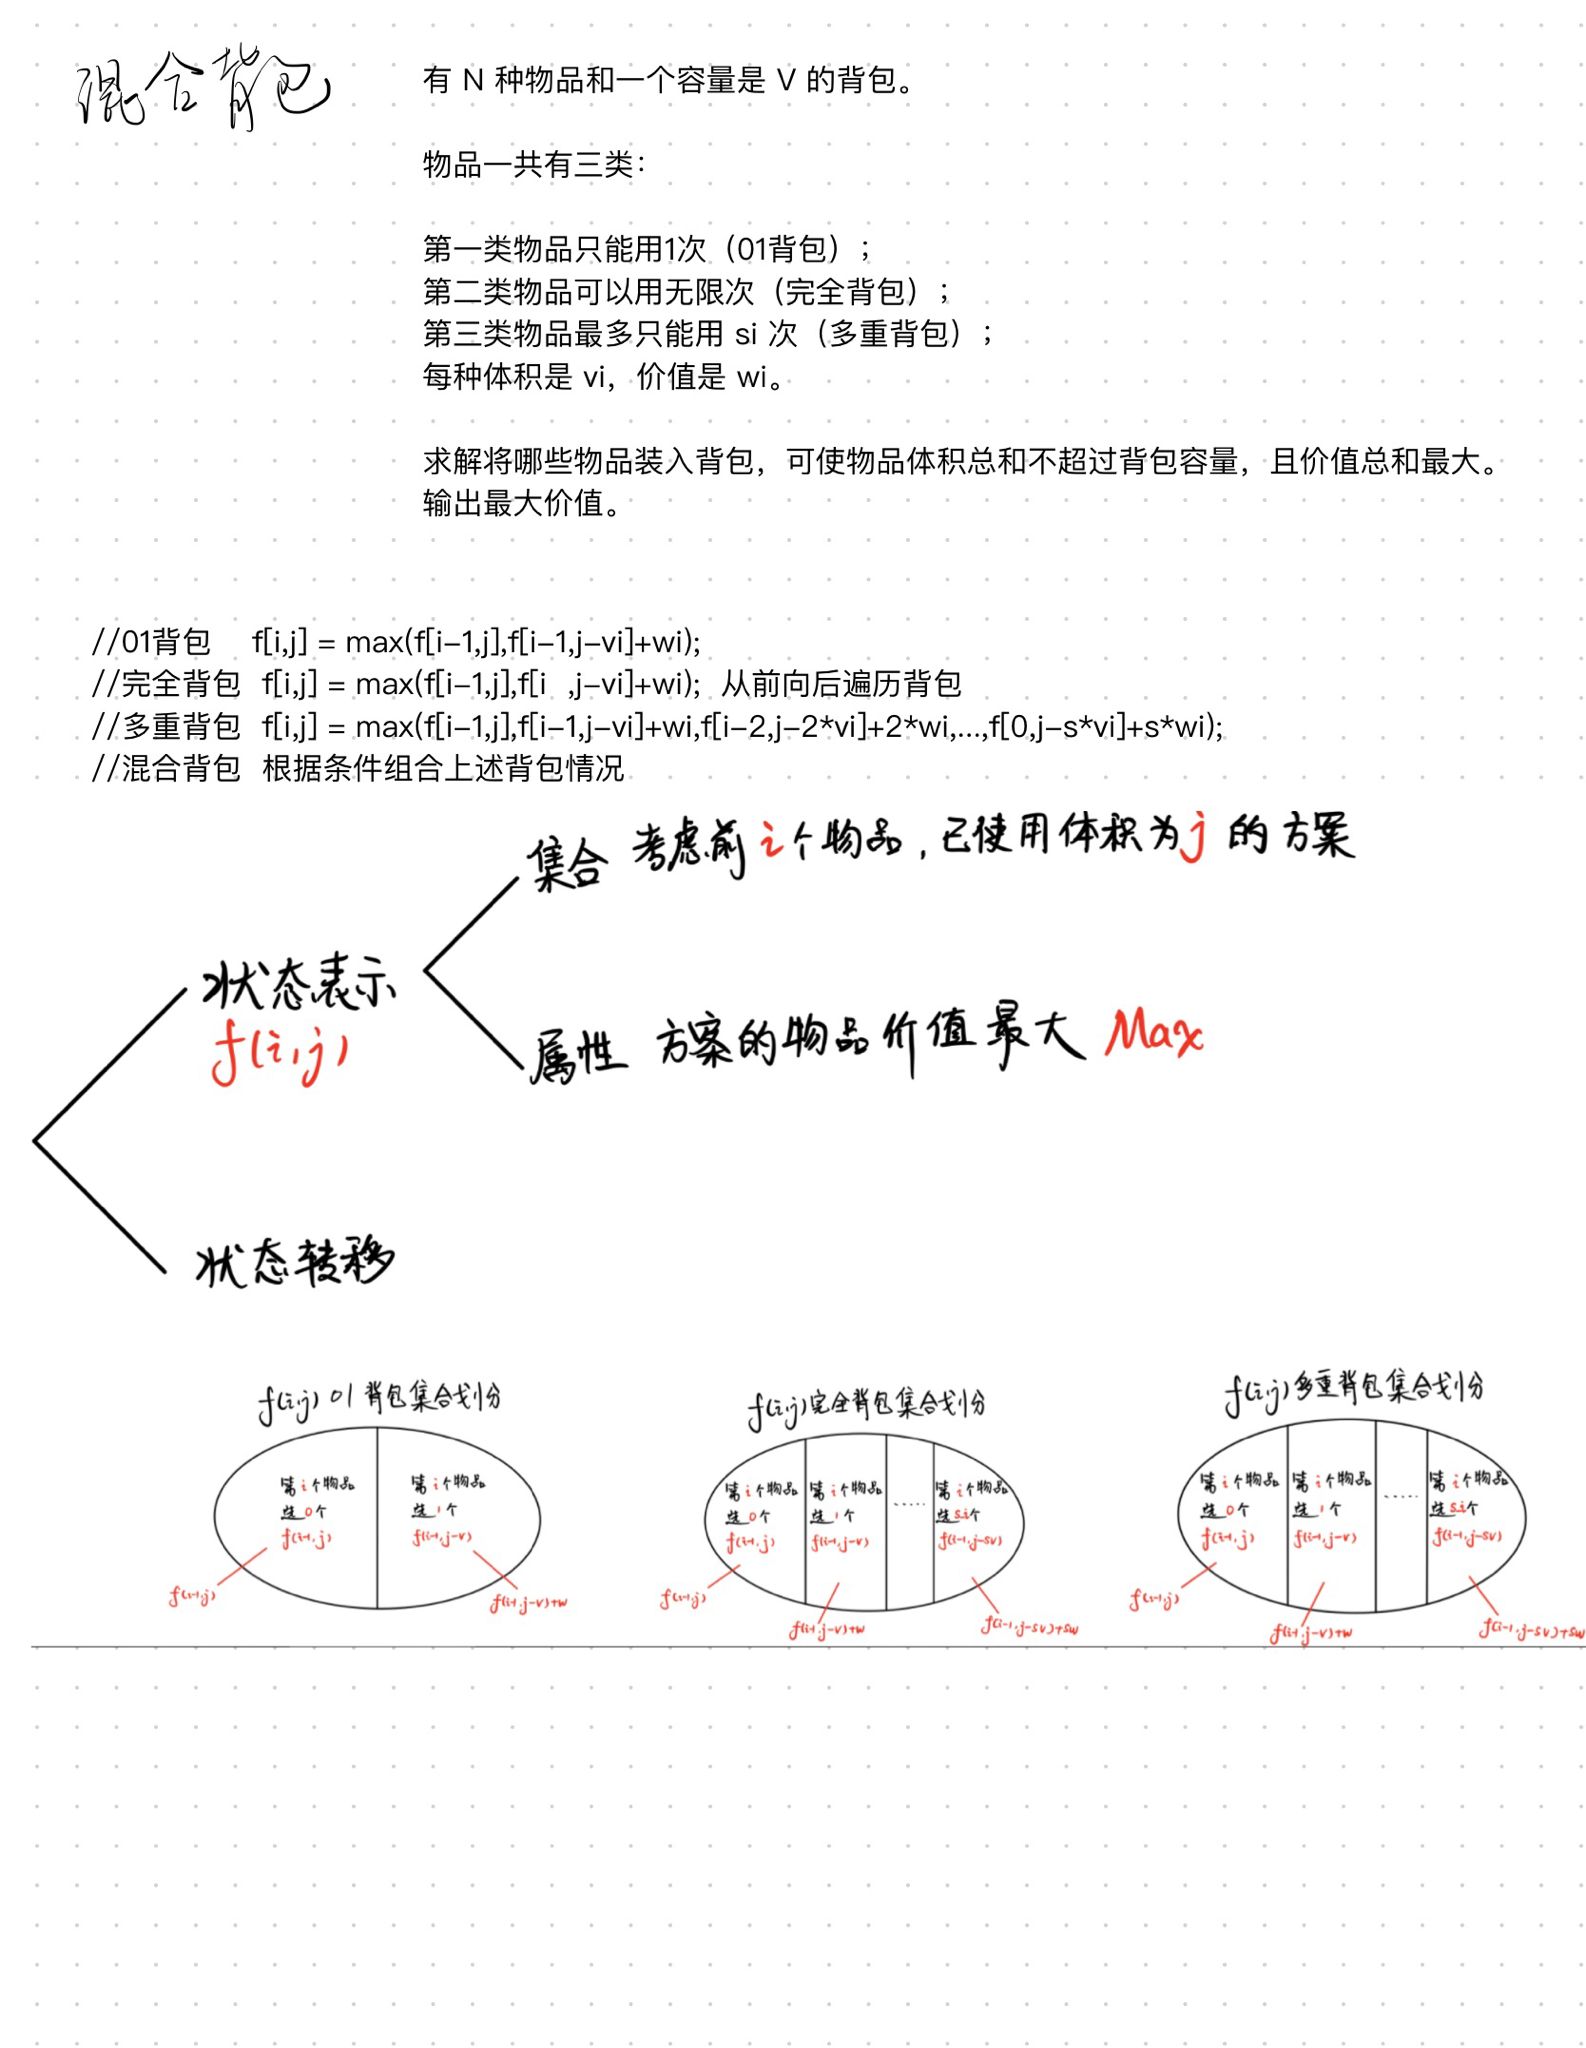 混合背包
有 N 种物品和一个容量是 V 的背包。
物品一共有三类：
第一类物品只能用1次（01背包）；
第二类物品可以用无限次（完全背包）；
第三类物品最多只能用 si 次（多重背包）；
每种体积是 vi，价值是 wi。
求解将哪些物品装入背包，可使物品体积总和不超过背包容量，且价值总和最大。
输出最大价值。
//01背包 f[i,j] = max(f[i-1,j],f[i-1,j-vi]+wi);
//完全背包 f[i,j] = max(f[i-1,j],f[i ,j-vi]+wi); 从前向后遍历背包
//多重背包 f[i,j] = max(f[i-1,j],f[i-1,j-vi]+wi,f[i-2,j-2*vi]+2*wi,...,f[0,j-s*vi]+s*wi);
//混合背包 根据条件组合上述背包情况
集合 考虑前i个物品，已使用体积为j的方案
状态表示
f(i,j)
属性 方案的物品价值最大 Max
状态转移
f(i,j) 01背包集合划分
第i个物品
选0个
f(i-1,j)
第i个物品
选1个
f(i-1,j-v)
f(i-1,j)
f(i-1,j-v)+w
f(i,j)完全背包集合划分
第i个物品
选0个
f(i-1,j)
第i个物品
选1个
f(i-1,j-v)
......
第i个物品
选si个
f(i-1,j-sv)
f(i-1,j)
f(i-1,j-v)+w
f(i-1,j-sv)+sw
f(i,j)多重背包集合划分
第i个物品
选0个
f(i-1,j)
第i个物品
选1个
f(i-1,j-v)
......
第i个物品
选si个
f(i-1,j-sv)
f(i-1,j)
f(i-1,j-v)+w
f(i-1,j-sv)+sw